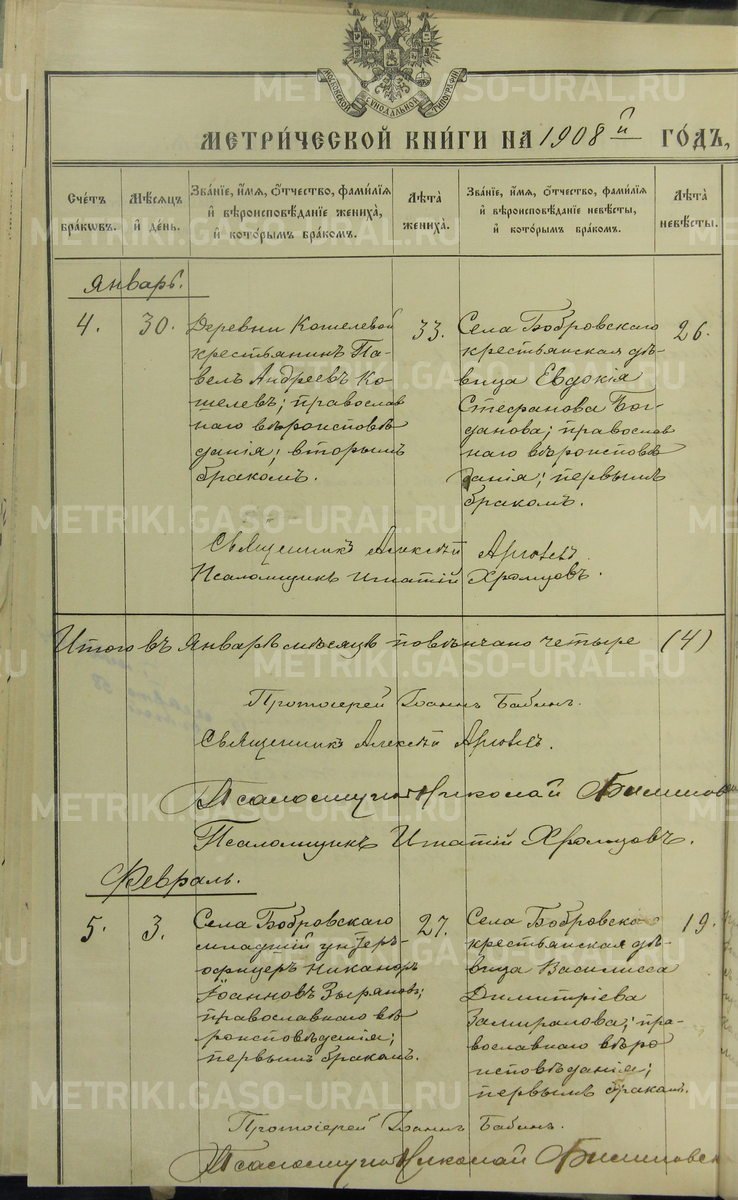 МОСКОВСКОЙ СУНОДАЛЬНОЙ ТИПОГРАФІИ
МЕТРИ́ЧЕСКОЙ КНИ́ГИ НА 1908й ГО́ДЪ,
Сче́тъ бра́кѡвъ.
Мѣ́сяцъ и́ де́нь.
Зва́ніе, и́мя, ѻ́тчество, фами́лїя и́ вѣроисповѣ́даніе жениха̀, и́ кото́рымъ бра́комъ.
Лѣ́та жениха̀.
Зва́ніе, и́мя, ѻ́тчество, фами́лїя и́ вѣроисповѣ́даніе невѣ́сты, и́ кото́рымъ бра́комъ.
Лѣ́та невѣ́сты.
Январь.
4. 30.
Деревни Кошелевой
крестьянинъ Па-
велъ Андреевъ Ко-
шелевъ; православ
наго вѣроисповѣ
данія; вторымъ
бракомъ.
33.
Села Бобровскаго
крестьянская дѣ-
вица Евдокія
Стефанова Бог-
данова; православ
наго вѣроисповѣ
данія; первымъ
бракомъ.
26.
Священникъ Алексѣй
Псаломщикъ Игнатій Хромцовъ.
Итого въ Январѣ мѣсяцѣ повѣнчано четыре (4)
Протоіерей Іоаннъ Бабинъ.
Священникъ Алексѣй
Псаломщикъ Николай
Псаломщикъ Игнатій Хромцовъ.
Февраль.
5. 3.
Села Бобровскаго
младшій унтеръ-
офицеръ Никаноръ
Іоанновъ Зыряновъ;
православнаго вѣ
роисповѣданія;
первымъ бракомъ.
27.
Села Бобровскаго
крестьянская дѣ-
вица Василисса
Димитріева
Замиралова; пра-
вославнаго вѣро
исповѣданія;
первымъ бракомъ.
19.
Протоіерей Іоаннъ Бабинъ.
Псаломщикъ Николай
METRIKI.GASO-URAL.RU